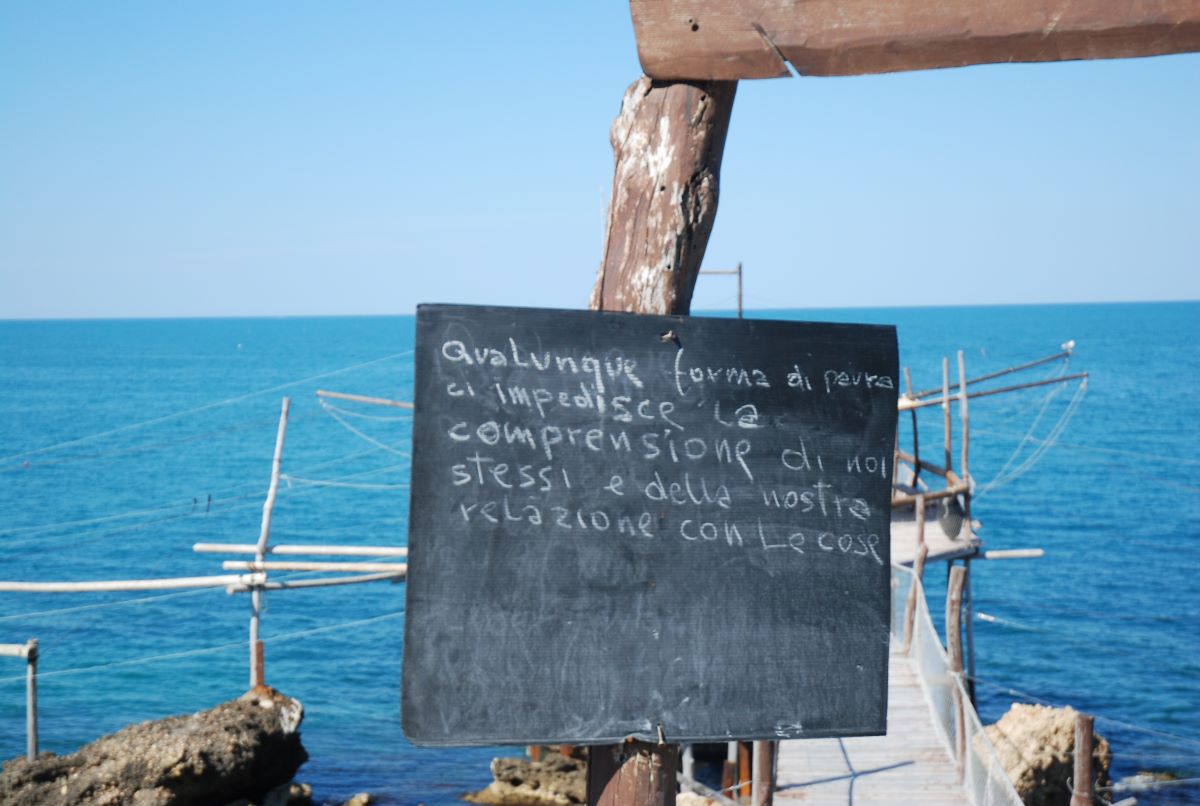 Qualunque forma di paura
ci impedisce la
comprensione di noi
stessi e della nostra
relazione con Le cose